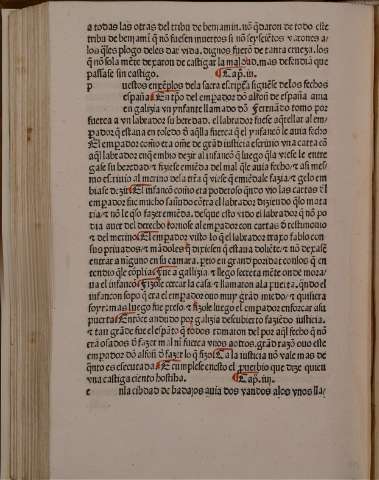 a todas las otras del tribu de benjamin. nõ q̃daron de todo este
tribu de benjami q̃ nõ fuesen muertos si nõ seysciẽtos varones a
los q̃les plogo deles dar vida. dignos fuerõ de tanta crueza. los
q̃ nõ sola mẽte dexaron de castigar la maldad. mas defendiã que
passase sin castigo. Cap. iij.
p uestos enxẽplos dela sacra escriptu siguẽse delos fechos
españa En tp̃o del emperador dõ alfon de españa auia
en galizia vn ynfante llamado dõ Fernãdo tomo por
fuerca a vn labrador su heredad. el labrador fuese aq̃rellar al em
pador q̃ estaua en toledo d̃ aq̃lla fuerca q̃l ynfancõ le auia fecho
El emperador como era ome de grãd iusticia escriuio vna carta cõ
aq̃l labrador enq̃ embio dezir al infancõ luego q̃la viese le entre
gase su heredad z fizese emiẽda del mal q̃le auia fecho z asi mes
mo escriuio al merino dela trã q̃ viese q̃ emẽdale fazia z gelo en
biase dezir El infancõ como era poderoso qñdo vio las cartas d̃l
emperador fue mucho sañudo cõtra el labrador diziendo q̃lo mata
ria z nõ le q̃so fazer emiẽda. desque esto vido el labrador q̃ nõ po
dia auer del derecho tornose al emperador con cartas d̃ testimonio
z del merino El emperador visto lo q̃ el labrador traxo fablo con
sus priuados z mãdoles q̃ dixiesen q̃ estaua doliẽte z nõ dexasẽ
entrar a ninguno en su camara. pero en grand poridat conlos q̃ en
tendio q̃le cõplia fue a gallizia z llego secreta mẽte on de mora
ua el infancõ Fizole cercar la casa z llamaron ala puerta. qñdo el
infancon sopo q̃ era el emperador ouo muy grãd miedo z quisiera
foyr. mas luego fue preso z fizole luego el emperador enforcar asu
puerta Entõce anduuo por galizia descubierto faziẽdo iusticia.
z tan grãde fue el espãto q̃ todos tomaron del por aq̃l fecho q̃ nõ
erã osados d̃ fazer mal ni fuerca vnos aotros. grãd razõ ouo este
emperador dõ alfon d̃ fazer lo q̃ fizo Ca la iusticia nõ vale mas de
qñto es esecutada Cumplese enesto el prouerbio que dize quien
vna castiga ciento hostiba. Cap. iiij
e nla cibdad de badajos auia dos vandos alos vnos lla